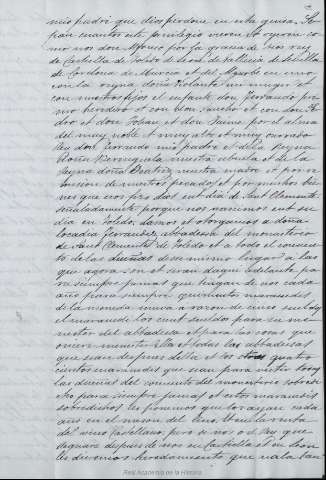 mio padre que dios perdone en esta guisa. Se
pan cuantos este privilegio vieren et oyeren co
mo nos don Alfonso por la gracia de dios rey
de Castiella de Toledo de Leon de Gallicia de Sevilla
de Cordova de Murcia et del Algarbe en uno
con la reyna doña Violante mi muger et
con nuestros fijos el infante don Ferrando pri
mero heredero et con don Sancho et con don Pe
dro et don Johan et don Jaime por el alma
del muy noble et muy alto et muy onrrado
Rey don Ferrando mio padre et de la Reyna
doña Berenguela nuestra abuela et de la
Reyna doña Beatriz nuestra madre et por re
mision de nuestros pecados et por muchos bie
nes que nos fizo dios en el dia de Sant Clemente
señaladamente porque nos nacimos en el su
dia en Toledo, damos et otorgamos a doña
Locadia Ferrandez abbadessa del monasterio
de Sant Clemente de Toledo et a todo el convien
to de las dueñas desse mismo lugar a las
que agora son et seran daqui adelante pa
ra siempre jamas que hayan de nos cada
año para siempre quinientos maravedis
de la moneda nueva a razon de cinco sueldos
el maravedi los cient sueldos para su me
nester del abbadessa et para las cosas que
oviere menester ella et todas las abbadessas
que seran despues della et los otros quatro
cientos maravedis que sean para vestir todas
las dueñas del convento del monesterio sobredi
cho para siempre jamas et estos maravedis
sobredichos les ponemos que los ayan cada
año en el nuestro
despues de nos en Castiella et en Leon
heredamiento que vala tan
Real Academia de la Historia